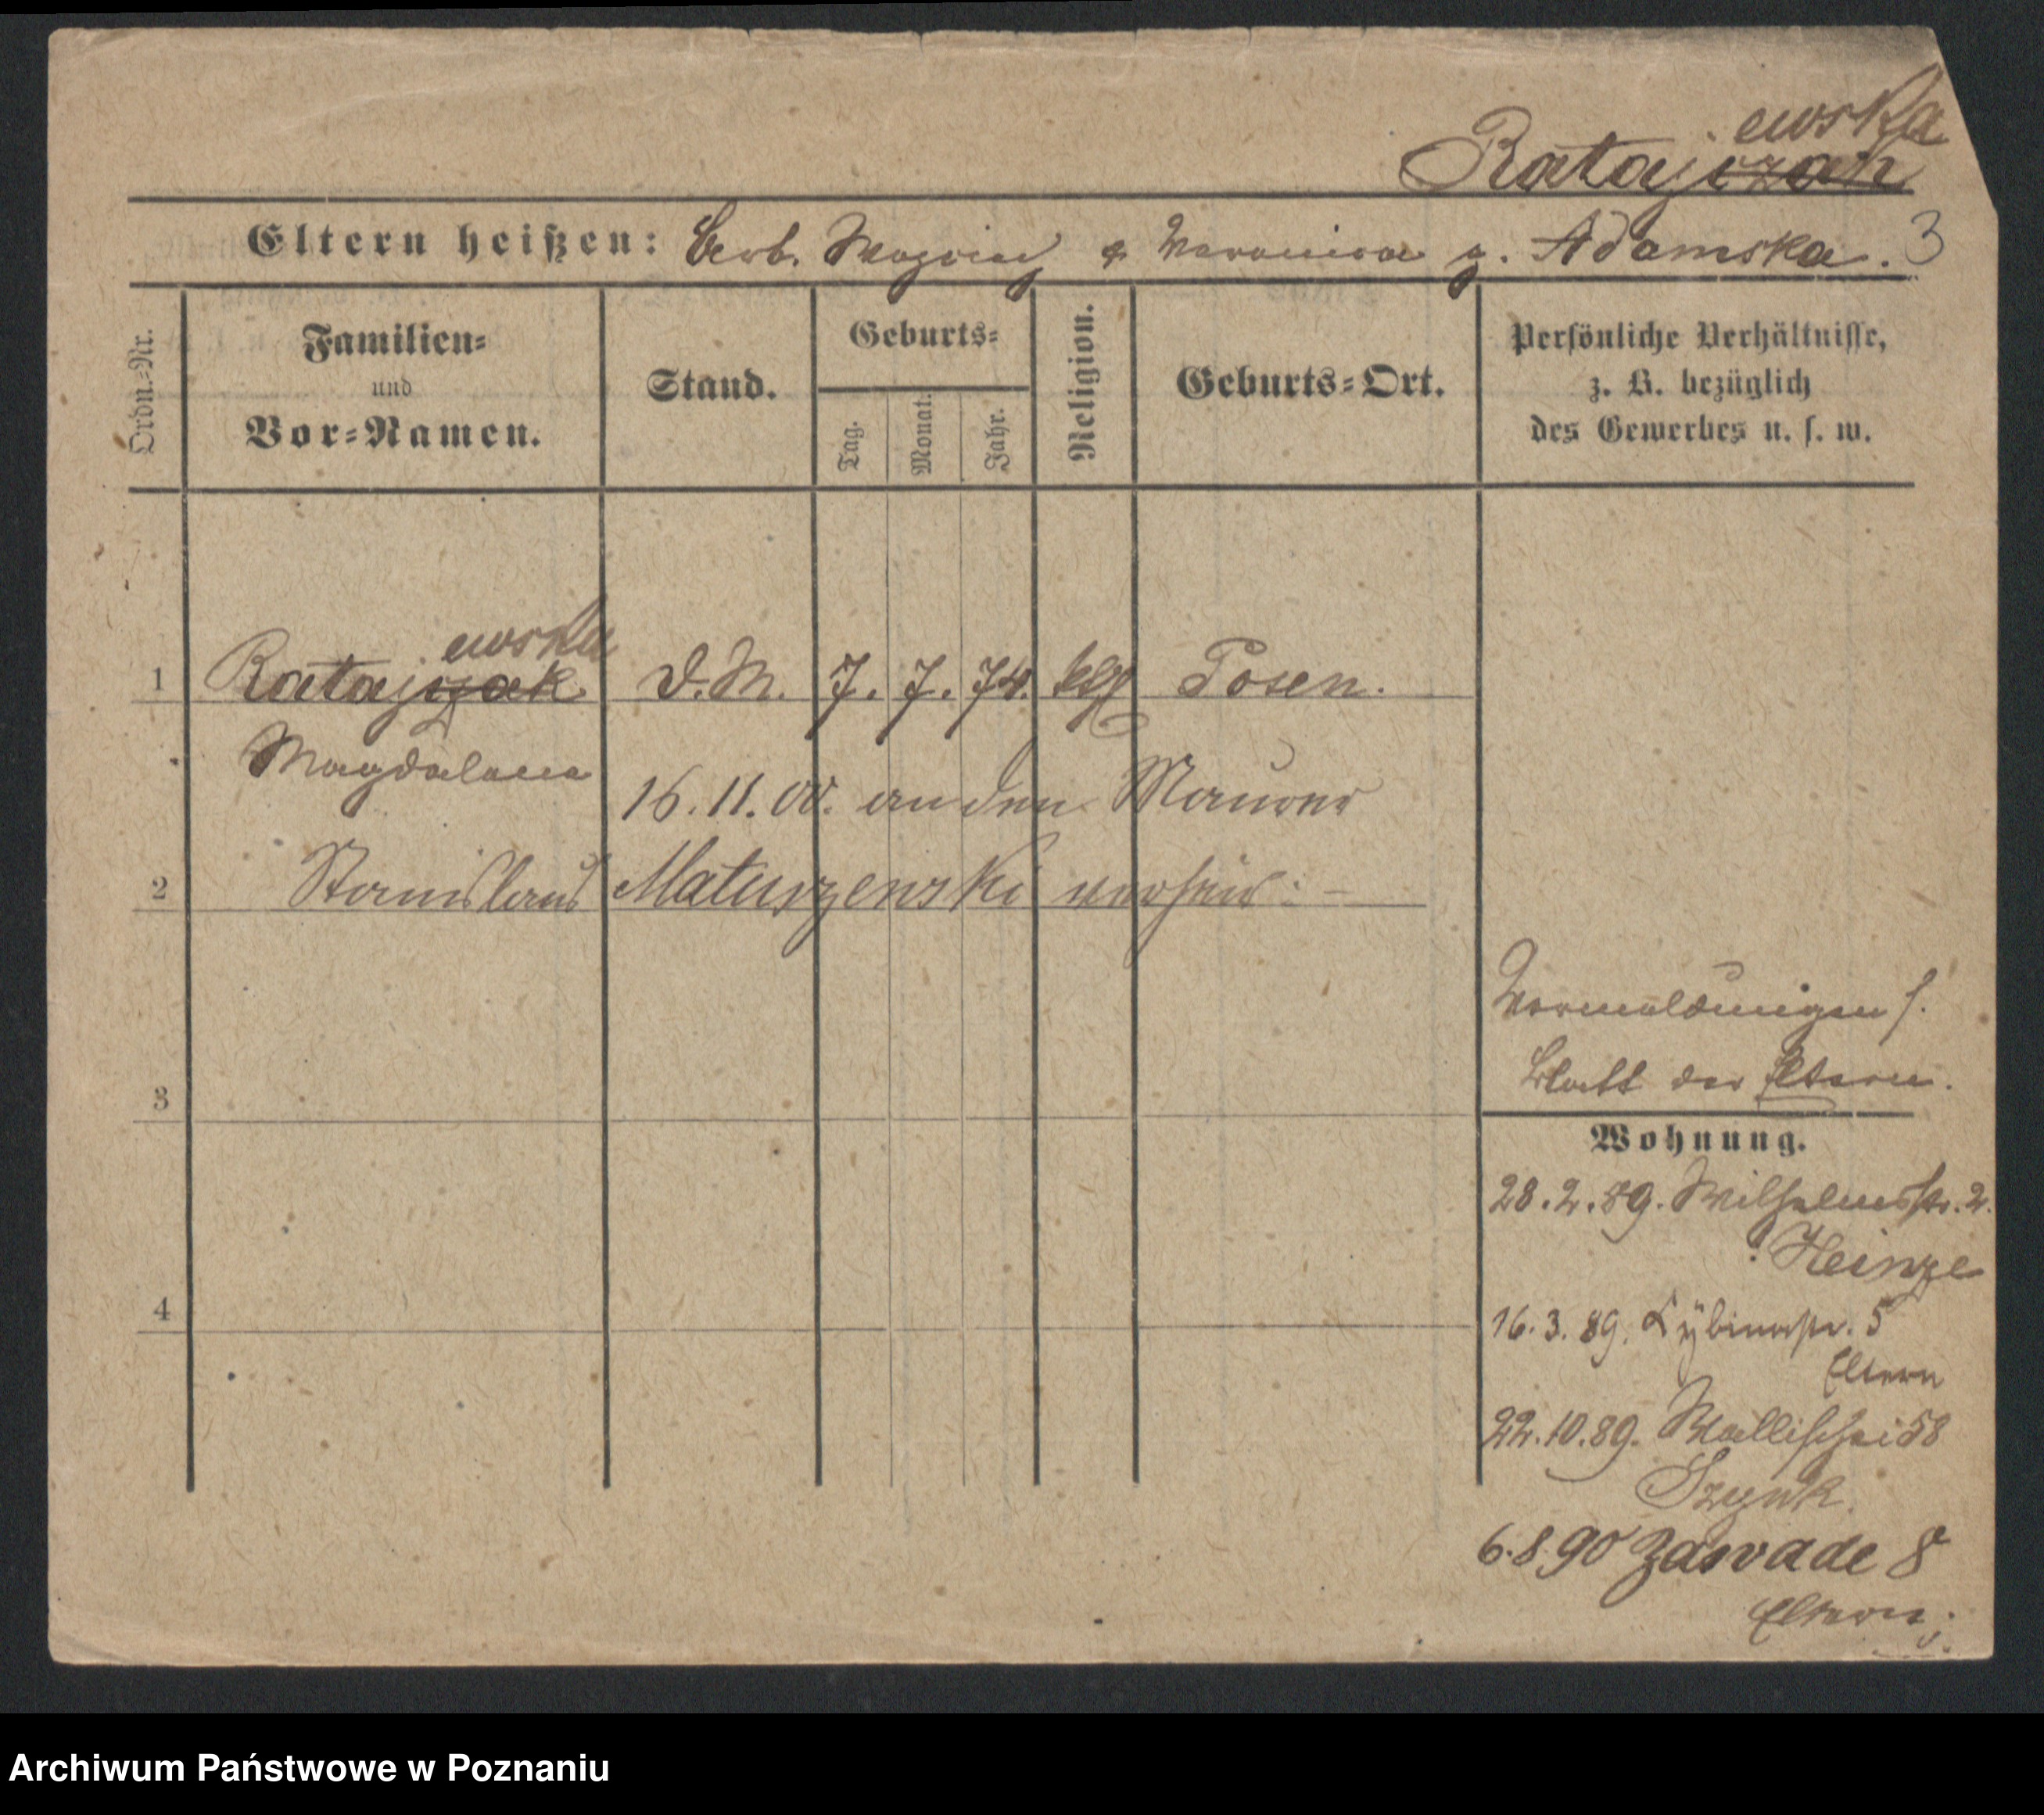 ewska
Ratajczak
Eltern heißen: Arb. & Veronica g. Adamska. 3
Ordn.-Nr.
Familien-
und
Vor-Namen.
Stand.
Geburts-
Tag.
Monat.
Jahr.
Religion.
Geburts-Ort.
Persönliche Verhältnisse,
z. B. bezüglich
des Gewerbes u. s. w.
ewska
1 Ratajczak D.M. 7. 7. 74. kth Posen.
Magdalena
16.11.00. an den Maurer
2 Stanislaus Matuszewski verheir: –
3
4
Vormeldungen s.
Blatt der Eltern.
Wohnung.
28.2.89. Wilhelmsstr. 2.
Heinze
16.3.89. Zybinastr. 5
Eltern
22.10.89. Wallischei 58
6.8.90 Zawade 8
Eltern
Archiwum Państwowe w Poznaniu